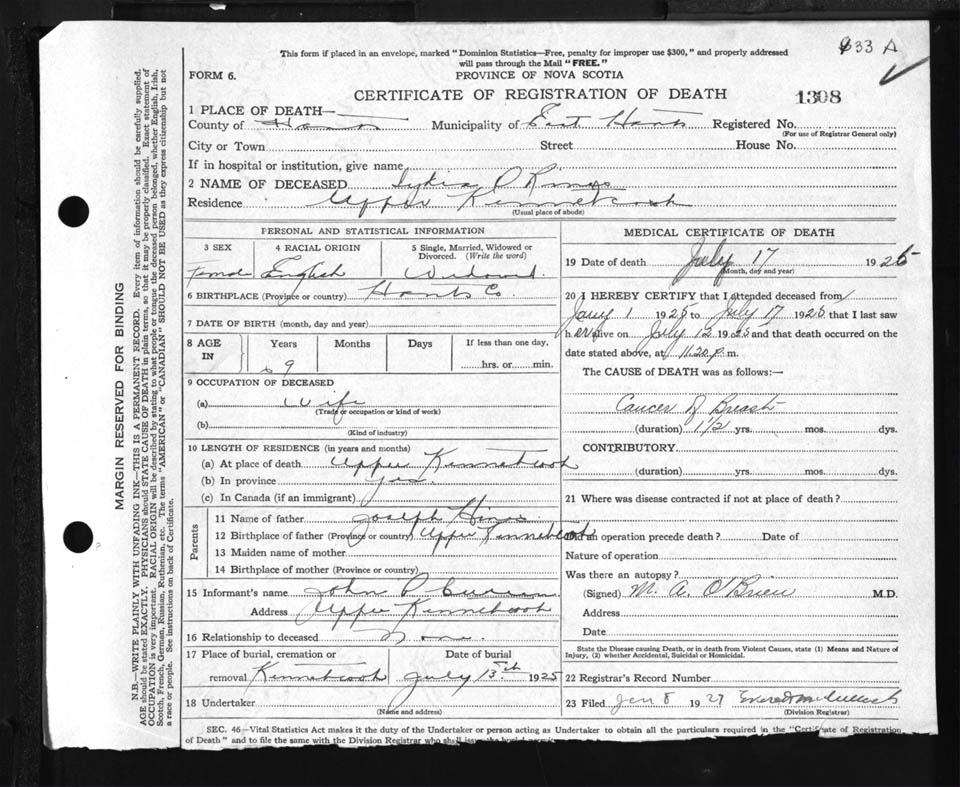 633 A
This form if placed in an envelope, marked "Dominion Statistics—Free, penalty for improper use $300," and properly addressed
will pass through the Mail "FREE."
FORM 6.
PROVINCE OF NOVA SCOTIA
CERTIFICATE OF REGISTRATION OF DEATH
1308
1 PLACE OF DEATH—
County of Municipality of East Hants Registered No.
(For use of Registrar General only)
City or Town Street House No.
If in hospital or institution, give name
2 NAME OF DECEASED Lydia
Residence Upper Kennetcook
(Usual place of abode)
PERSONAL AND STATISTICAL INFORMATION
3 SEX 4 RACIAL ORIGIN 5 Single, Married, Widowed or Divorced. (Write the word)
Female English Widowed
6 BIRTHPLACE (Province or country) Hants Co
7 DATE OF BIRTH (month, day and year)
8 AGE IN Years Months Days If less than one day,
69 hrs. or min.
9 OCCUPATION OF DECEASED
(a) Wife
(Trade or occupation or kind of work)
(b)
(Kind of industry)
10 LENGTH OF RESIDENCE (in years and months)
(a) At place of death Upper Kennetcook
(b) In province Yes
(c) In Canada (if an immigrant)
Parents
11 Name of father Joseph
12 Birthplace of father (Province or country) Upper Kennetcook
13 Maiden name of mother
14 Birthplace of mother (Province or country)
15 Informant's name John
Address Upper Kennetcook
16 Relationship to deceased None
17 Place of burial, cremation or Date of burial
removal Kennetcook July 1925
18 Undertaker
(Name and address)
MEDICAL CERTIFICATE OF DEATH
19 Date of death July 17 1925
(Month, day and year)
20 I HEREBY CERTIFY that I attended deceased from
Jany 1 1925 to July 17 1925 that I last saw
h er alive on July 12 1925 and that death occurred on
date stated above, at 11.20 p. m.
The CAUSE of DEATH was as follows:—
Cancer of Breast
(duration) 1 1/2 yrs. mos. dys.
CONTRIBUTORY
(duration) yrs. mos. dys.
21 Where was disease contracted if not at place of death?
Did an operation precede death? Date of
Nature of operation
Was there an autopsy?
(Signed) M. A. O'Brien M.D.
Address
Date
State the Disease causing Death, or in death from Violent Causes, state (1) Means and Nature of
Injury, (2) whether Accidental, Suicidal or Homicidal.
22 Registrar's Record Number
23 Filed Jan 8 1927
(Division Registrar)
SEC. 46—Vital Statistics Act makes it the duty of the Undertaker or person acting as Undertaker to obtain all the particulars required in the "Certificate of Registration
of Death" and to file the same with the Division Registrar who shall
MARGIN RESERVED FOR BINDING
N.B.—WRITE PLAINLY WITH UNFADING INK—THIS IS A PERMANENT RECORD. Every item of information should be carefully supplied.
AGE should be stated EXACTLY. PHYSICIANS should STATE CAUSE OF DEATH in plain terms, so that it may be properly classified. Exact statement of
OCCUPATION is very important. RACIAL ORIGIN will be described by stating to what people or tongue the deceased person belonged, whether English, Irish,
Scotch, French, German, Russian, Ruthenian, etc. The terms "AMERICAN" or "CANADIAN" SHOULD NOT BE USED as they express citizenship but not
a race or people. See instructions on back of Certificate.